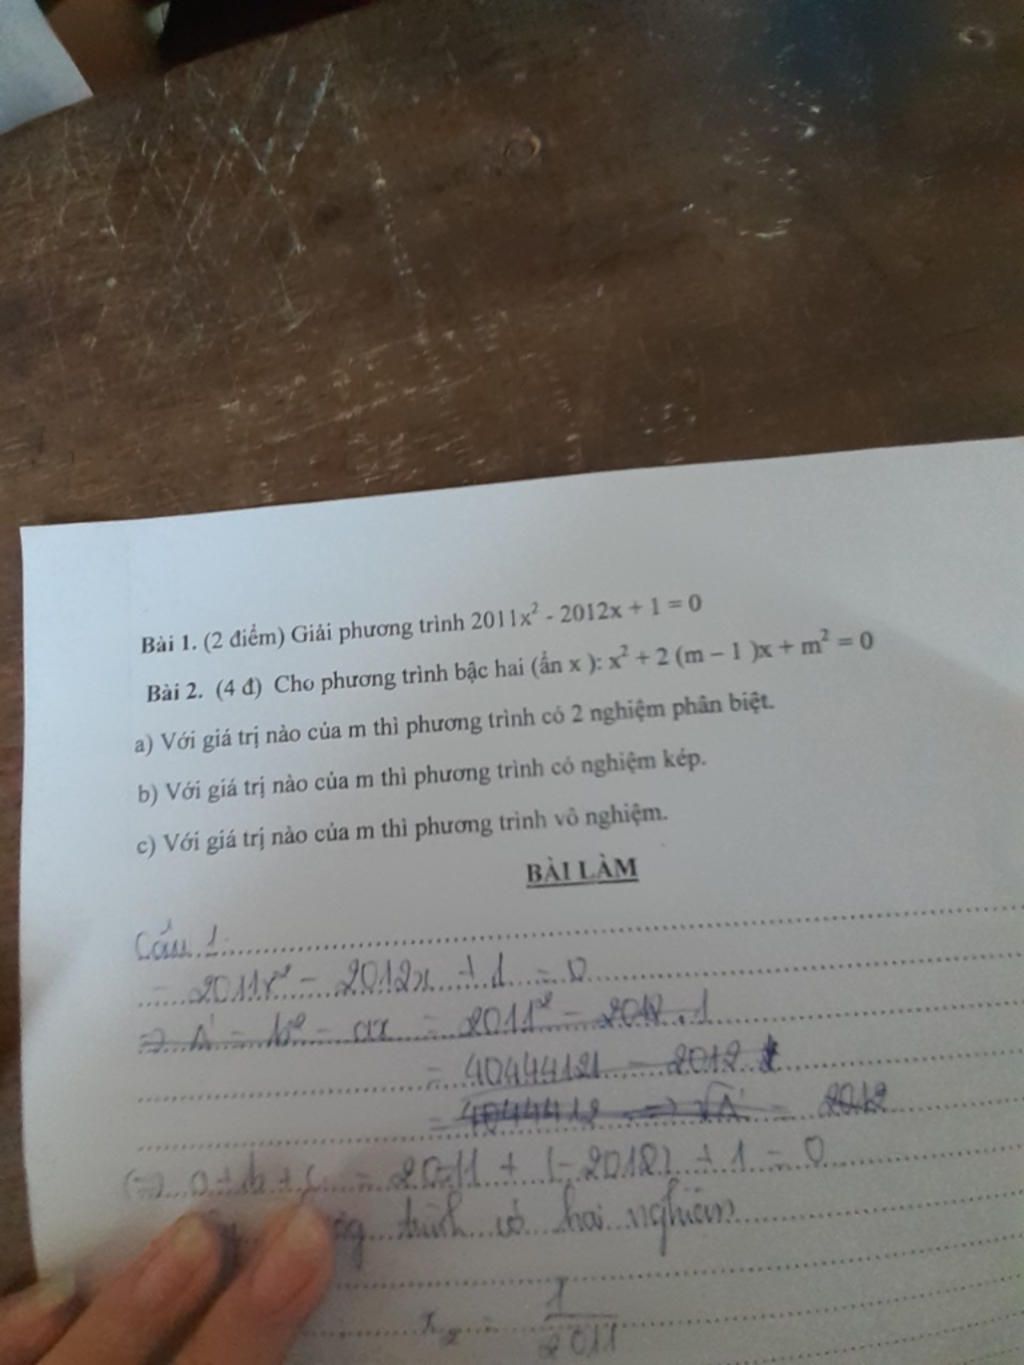 Bài 1. (2 điểm) Giải phương trình 2011x² - 2012x + 1 = 0
Bài 2. (4 đ) Cho phương trình bậc hai (ẩn x ): x² + 2 (m – 1 )x + m² = 0
a) Với giá trị nào của m thì phương trình có 2 nghiệm phân biệt.
b) Với giá trị nào của m thì phương trình có nghiệm kép.
c) Với giá trị nào của m thì phương trình vô nghiệm.
BÀI LÀM
Câu 1:
2011x² - 2012x + 1 = 0
=> Δ' = b² - ac = 2011² - 2012.1
= 4044121 - 2012
=> √Δ' = 2012
a + b + c = 2011 + (-2012) + 1 = 0
trình có hai nghiệm
x₂ = 1/2011